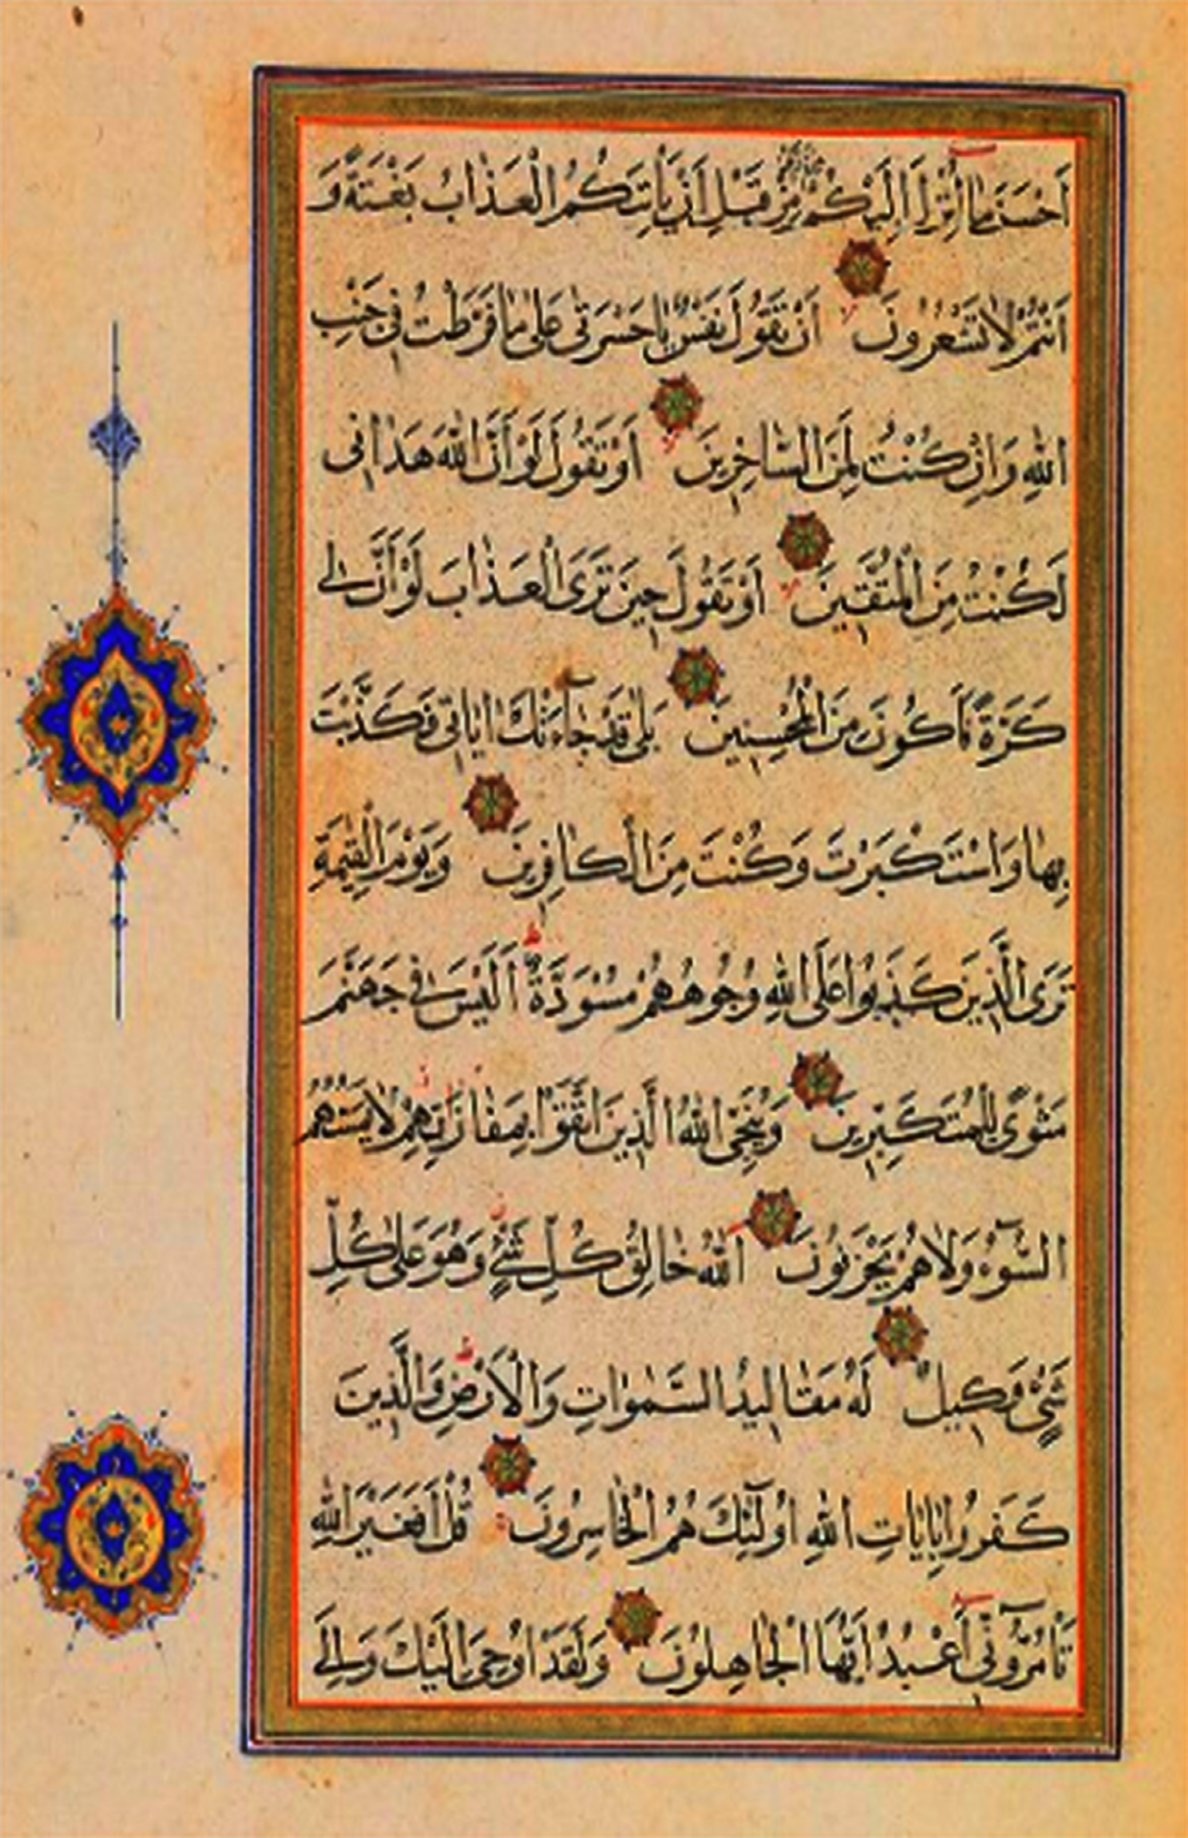 اَحْسَنَ مَا اُنْزِلَ اِلَيْكُمْ مِنْ رَبِّكُمْ مِنْ قَبْلِ اَنْ يَأْتِيَكُمُ الْعَذَابُ بَغْتَةً وَ
اَنْتُمْ لَا تَشْعُرُونَ اَنْ تَقُولَ نَفْسٌ يَا حَسْرَتٰى عَلٰى مَا فَرَّطْتُ فِي جَنْبِ
اللهِ وَاِنْ كُنْتُ لَمِنَ السَّاخِرِينَ اَوْ تَقُولَ لَوْ اَنَّ اللهَ هَدَانِي
لَكُنْتُ مِنَ الْمُتَّقِينَ اَوْ تَقُولَ حِينَ تَرَى الْعَذَابَ لَوْ اَنَّ لِي
كَرَّةً فَاَكُونَ مِنَ الْمُحْسِنِينَ بَلٰى قَدْ جَآءَتْكَ اٰيَاتِي فَكَذَّبْتَ
بِهَا وَاسْتَكْبَرْتَ وَكُنْتَ مِنَ الْكَافِرِينَ وَيَوْمَ الْقِيٰمَةِ
تَرَى الَّذِينَ كَذَبُوا عَلَى اللهِ وُجُوهُهُمْ مُسْوَدَّةٌ ط اَلَيْسَ فِي جَهَنَّمَ
مَثْوًى لِلْمُتَكَبِّرِينَ وَيُنَجِّي اللهُ الَّذِينَ اتَّقَوْا بِمَفَازَتِهِمْ لَا يَمَسُّهُمُ
السُّوٓءُ وَلَا هُمْ يَحْزَنُونَ اَللهُ خَالِقُ كُلِّ شَيْءٍ وَهُوَ عَلٰى كُلِّ
شَيْءٍ وَكِيلٌ لَهُ مَقَالِيدُ السَّمٰوَاتِ وَالْاَرْضِ ط وَالَّذِينَ
كَفَرُوا بِاٰيَاتِ اللهِ اُولٰٓئِكَ هُمُ الْخَاسِرُونَ قُلْ اَفَغَيْرَ اللهِ
تَاْمُرُوٓنِّي اَعْبُدُ اَيُّهَا الْجَاهِلُونَ وَلَقَدْ اُوحِيَ اِلَيْكَ وَاِلَى